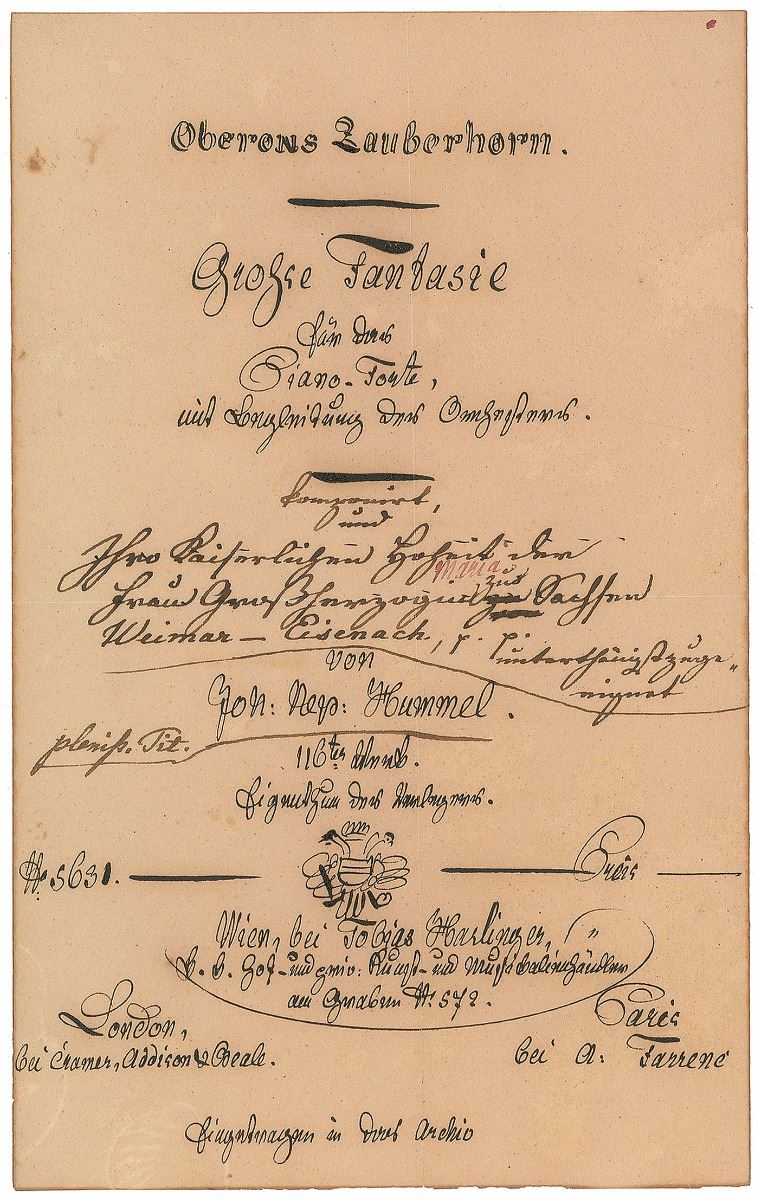 Oberons Zauberhorn.
Große Fantasie
für das
Piano-Forte,
mit Begleitung des Orchesters.
komponirt,
und
Ihro Kaiserlichen Hoheit der
Maria
Frau Großherzogin zu Sachsen
Weimar – Eisenach, p. p.
unterthänigst zuge„
eignet
von
Joh: Nep: Hummel.
pleniß. Tit.
116tes Werk.
Eigenthum des Verlegers.
No 5631.
Preis
Wien, bei Tobias Haslinger,
k. k. Hof- und priv: Kunst- und Musikalienhändler
am Graben No 572.
London,
bei Cramer, Addison & Beale.
Paris
bei A: Farrenc
Eingetragen in das Archiv